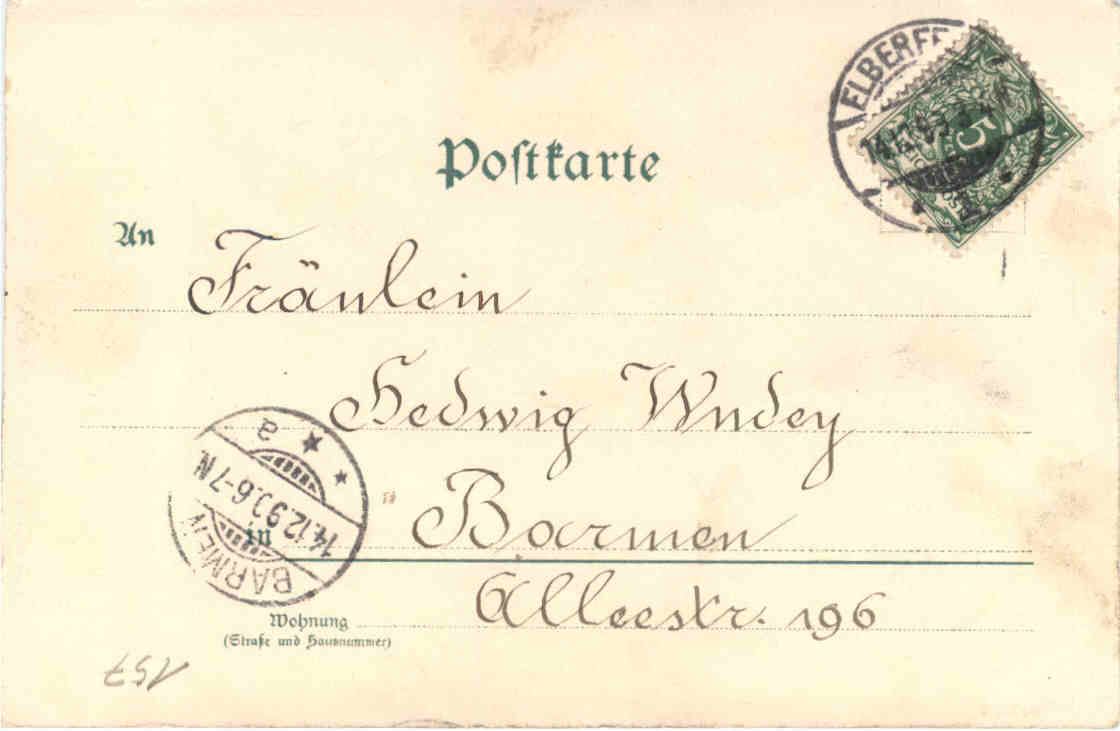 Postkarte
ELBERFE
5
An
Fräulein
Hedwig Wndey
in Barmen
Alleestr. 196
Wohnung
(Straße und Hausnummer)
BARMEN
14.12.9 .6-7N.
a
157